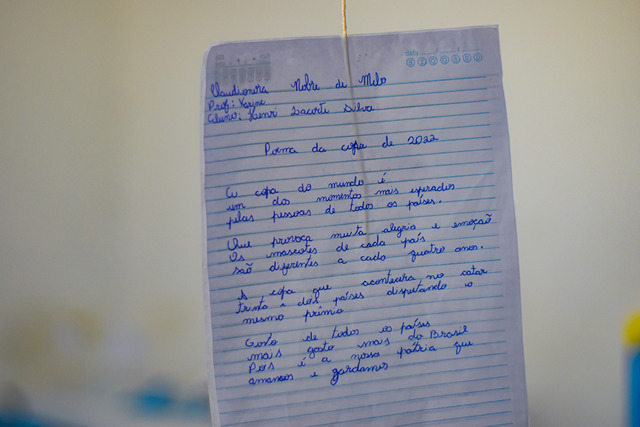 data / /
Claudionora Nobre de Melo
Prof: Karine
Aluno: Kenri Lacorte Silva
Poema da copa de 2022
A copa do mundo é
um dos momentos mais esperados
pelas pessoas de todos os países.
Que provoca muita alegria e emoção
Os mascotes de cada país
são diferentes a cada quatro anos.
A copa que acontecera no catar
trinta e dois países disputando o
mesmo prêmio
Gosto de todos os países
mais gosto mais do Brasil
Pois é a nossa pátria que
amamos e gardamos